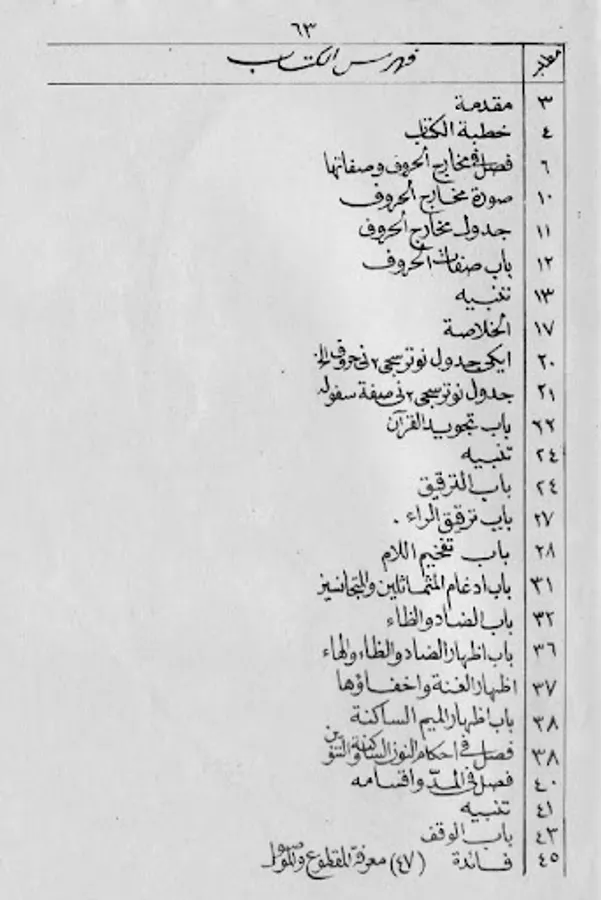 ٦٣
فهرس الكتاب
٣ مقدمة
٤ خطبة الكتاب
٦ فصل في مخارج الحروف وصفاتها
١٠ صورة مخارج الحروف
١١ جدول مخارج الحروف
١٢ باب صفات الحروف
١٣ تنبيه
١٧ الخلاصة
٢٠ ايكى جدول نوترسجى٢نى حروف
٢١ جدول نوترسجى٢نى صفة سفوله
٢٢ باب تجويد القرآن
٢٤ تنبيه
٢٤ باب الترقيق
٢٧ باب ترقيق الراء .
٢٨ باب تفخيم اللام
٣١ باب ادغام المتماثلين والمتجانسين
٣٢ باب الضاد والظاء
٣٦ باب اظهار الضاد والظاء والهاء
٣٧ اظهار الغنة واخفاؤها
٣٨ باب اظهار الميم الساكنة
٣٨ فصل في احكام النون الساكنة والتنوين
٤٠ فصل في المد واقسامه
٤١ تنبيه
٤٣ باب الوقف
٤٥ فائدة (٤٧) معرفة المقطوع والموصول